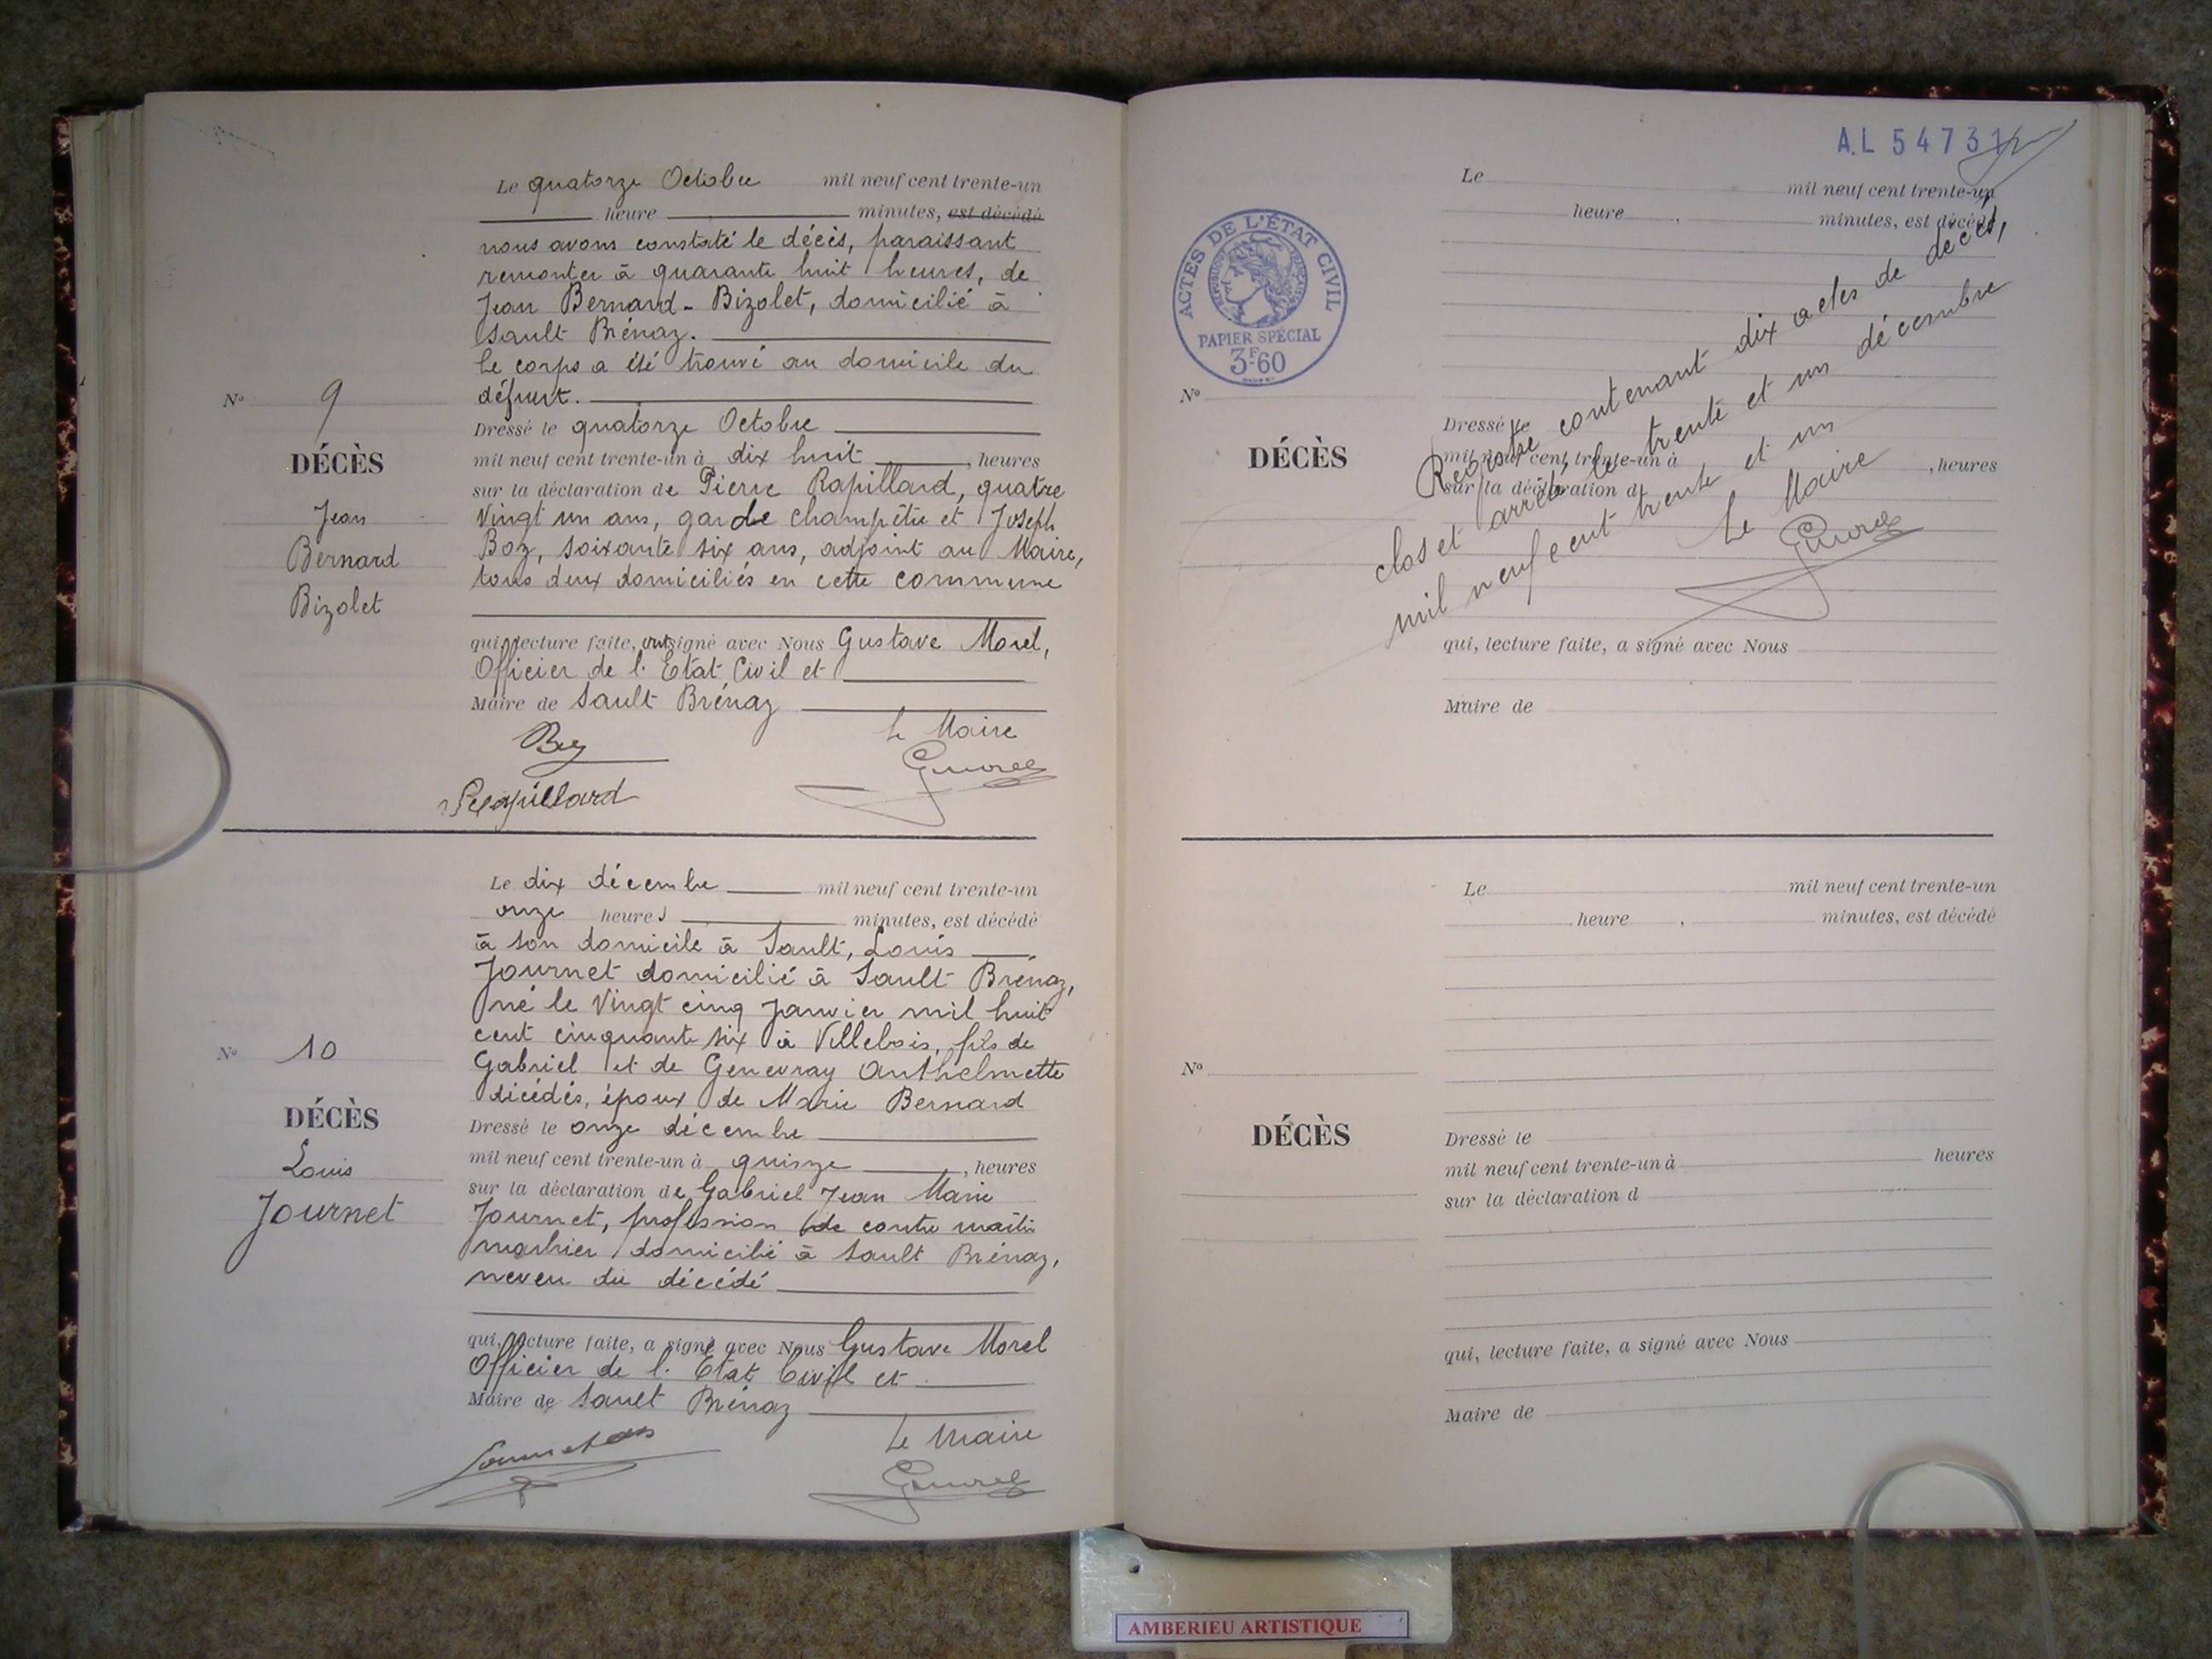 Le quatorze Octobre mil neuf cent trente-un
heure minutes, est décédé
nous avons constaté le décès, paraissant
remonter à quarante huit heures, de
Jean Bernard-Bizolet, domicilié à
Sault Brénaz.
Le corps a été trouvé au domicile du
défunt.
Nº 9
Dressé le quatorze Octobre
DÉCÈS
mil neuf cent trente-un à dix huit, heures
sur la déclaration de Pierre Rapillard, quatre
Jean
vingt un ans, garde champêtre et Joseph
Bernard
Boz, soixante six ans, adjoint au Maire,
tous deux domiciliés en cette commune
Bizolet
qui, lecture faite, ont signé avec Nous Gustave Morel,
Officier de l'Etat Civil et
Maire de Sault Brénaz
Le Maire
Boz
GMorel
Rapillard
Le dix décembre mil neuf cent trente-un
onze heures minutes, est décédé
à son domicile à Sault, Louis
Journet domicilié à Sault Brénaz,
né le vingt cinq janvier mil huit
cent cinquante six à Villebois, fils de
Nº 10
Gabriel et de Genevray Anthelmette
décédés, époux de Marie Bernard
DÉCÈS
Dressé le onze décembre
Louis
mil neuf cent trente-un à quinze, heures
sur la déclaration de Gabriel Jean Marie
Journet
Journet, profession de contre maître
marbrier domicilié à Sault Brénaz,
neveu du décédé
qui, lecture faite, a signé avec Nous Gustave Morel
Officier de l'Etat Civil et
Maire de Sault Brénaz
Le Maire
GMorel
A.L 5473
Le mil neuf cent trente-un
heure, minutes, est décédé
ACTES DE L'ÉTAT CIVIL
RÉPUBLIQUE FRANÇAISE
PAPIER SPÉCIAL
3F60
Registre contenant dix actes de décès,
clos et arrêté le trente et un décembre
mil neuf cent trente et un
Le Maire
GMorel
Nº
DÉCÈS
Dressé le
mil neuf cent trente-un à, heures
sur la déclaration d
qui, lecture faite, a signé avec Nous
Maire de
Le mil neuf cent trente-un
heure, minutes, est décédé
Nº
DÉCÈS
Dressé le
mil neuf cent trente-un à heures
sur la déclaration d
qui, lecture faite, a signé avec Nous
Maire de
AMBERIEU ARTISTIQUE